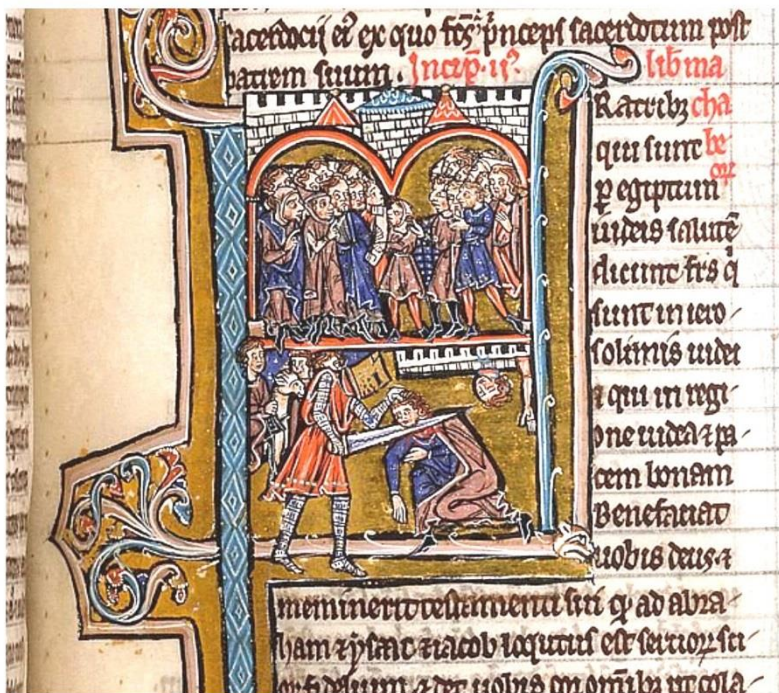 sacerdocij ei⁹ ex quo fc̄s p̄nceps sacerdotum post
patrem suum. Incip̄. ii⁹. lib̄ ma
Ratribꝫ cha
qui sunt be
ꝑ egiptum oꝝ
iudeis salutē
dicunt fr̄s q̄
sunt in iero
solimis iudei
⁊ qui in regi
one iudea ⁊ pa
cem bonam
Benefaciat
uobis deus ⁊
meminerit testamenti sui qđ ad abra
ham ⁊ ysaac ⁊ iacob loqutus est seruoꝝ sci
oꝝ fidelium. ⁊ det uobis cor om̄ibꝫ ut cola